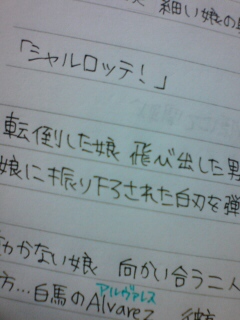 細い娘の
「シャルロッテ！」
転倒した娘 飛び出した男
娘に振り下ろされた白刃を弾
かない娘 向かい合う二人
アルヴァレス
方…白馬のAlvarez 彼方